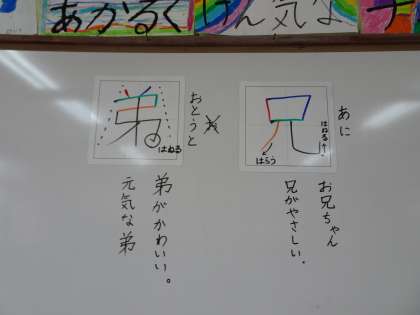 あかるく
げん気な
あに
兄
はねる
はらう
お兄ちゃん
兄がやさしい.
おとうと
弟
はねる
弟がかわいい。
元気な弟